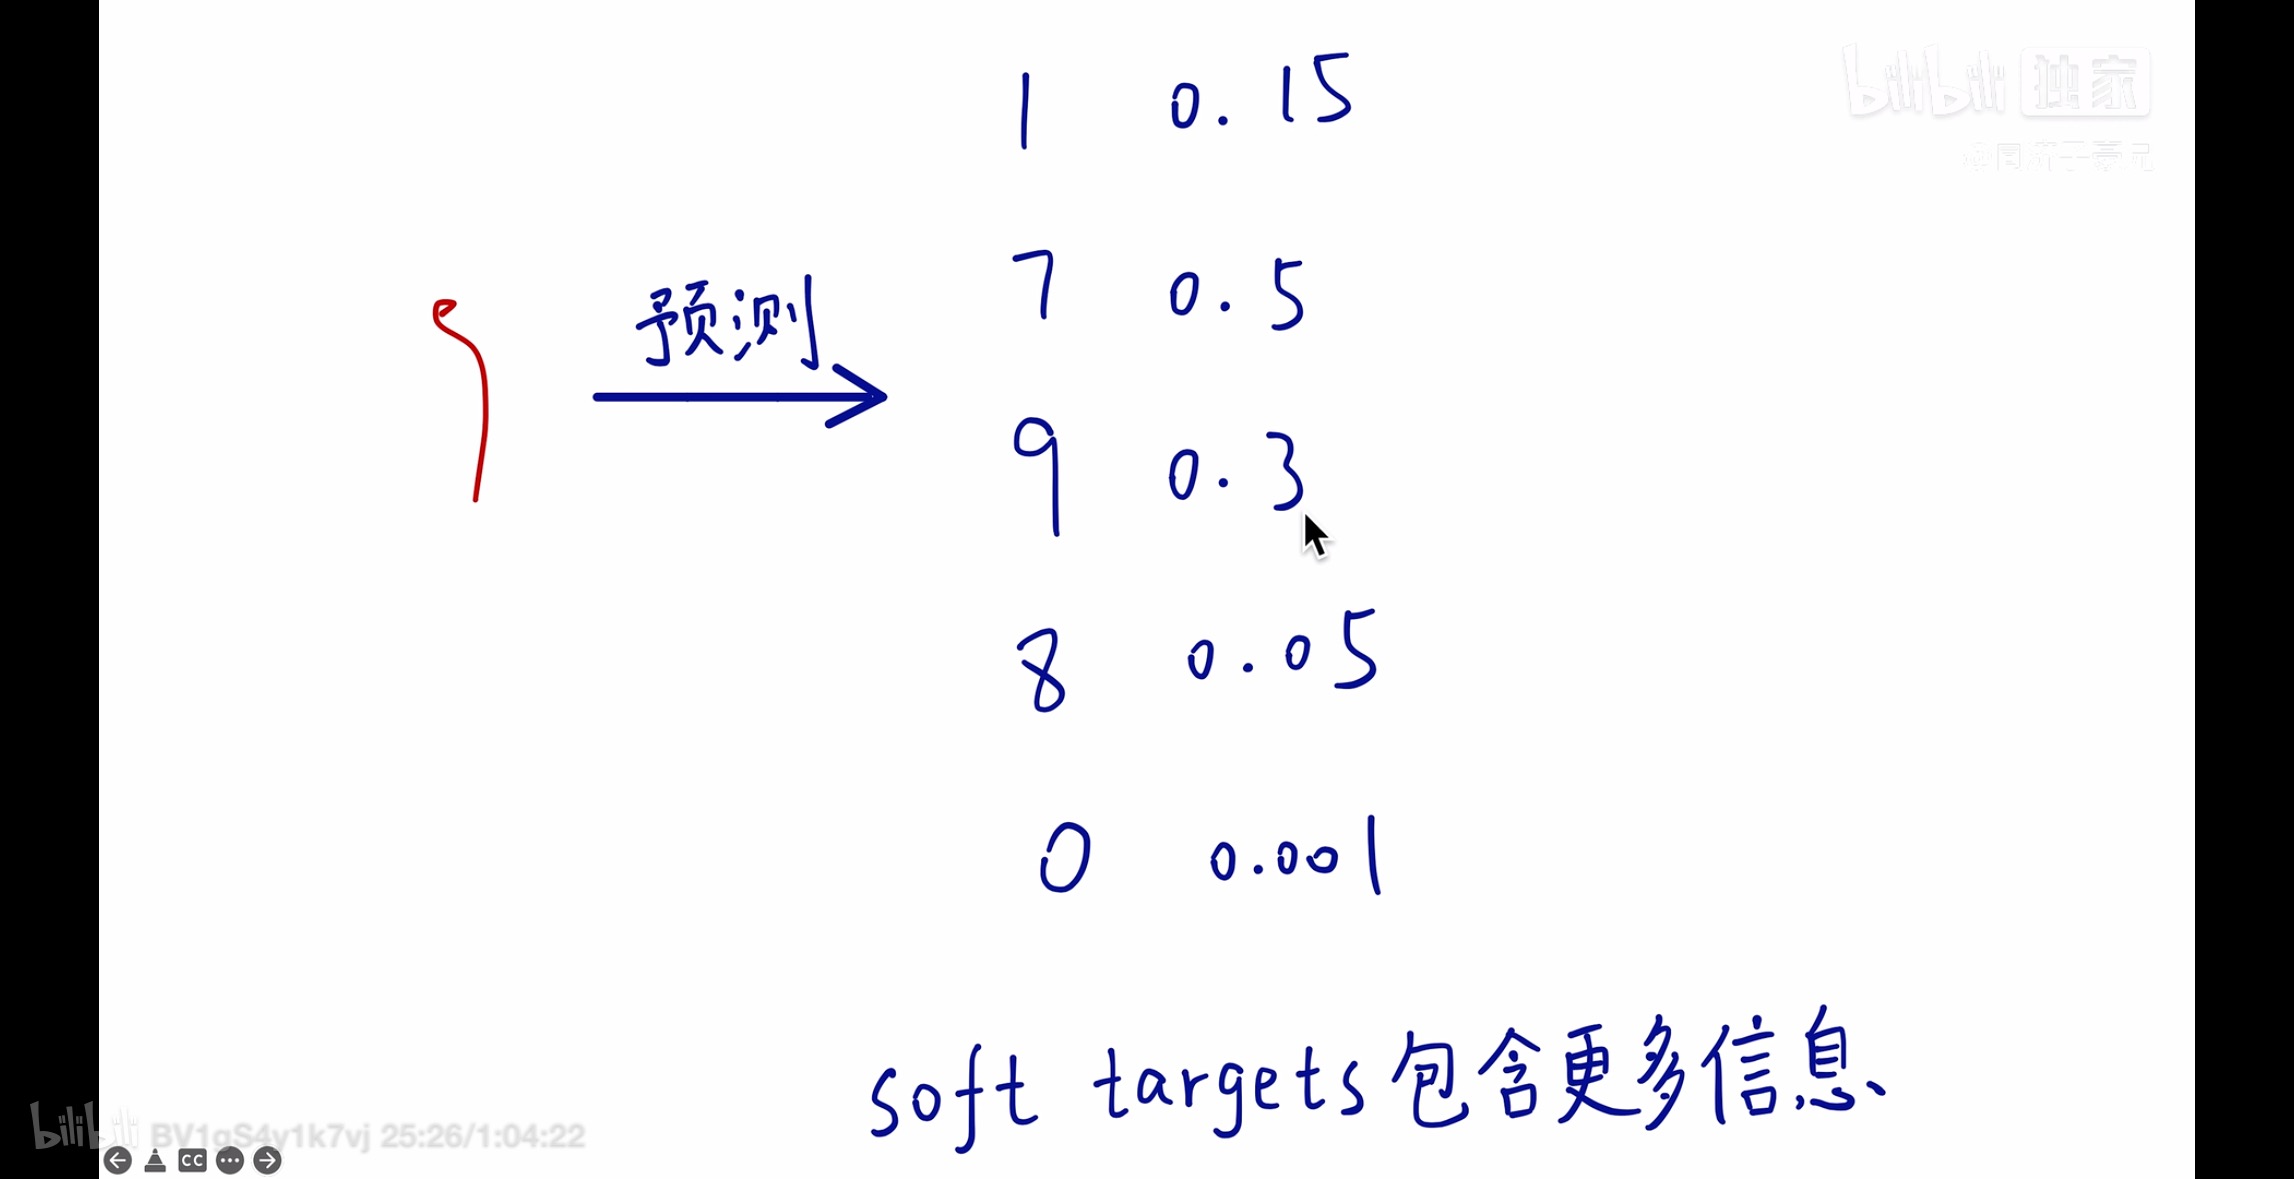 bilibili 独家
1 0.15
7 0.5
预测
9 0.3
8 0.05
0 0.001
soft targets包含更多信息
bilibili BV1gS4y1k7vj 25:26/1:04:22
CC